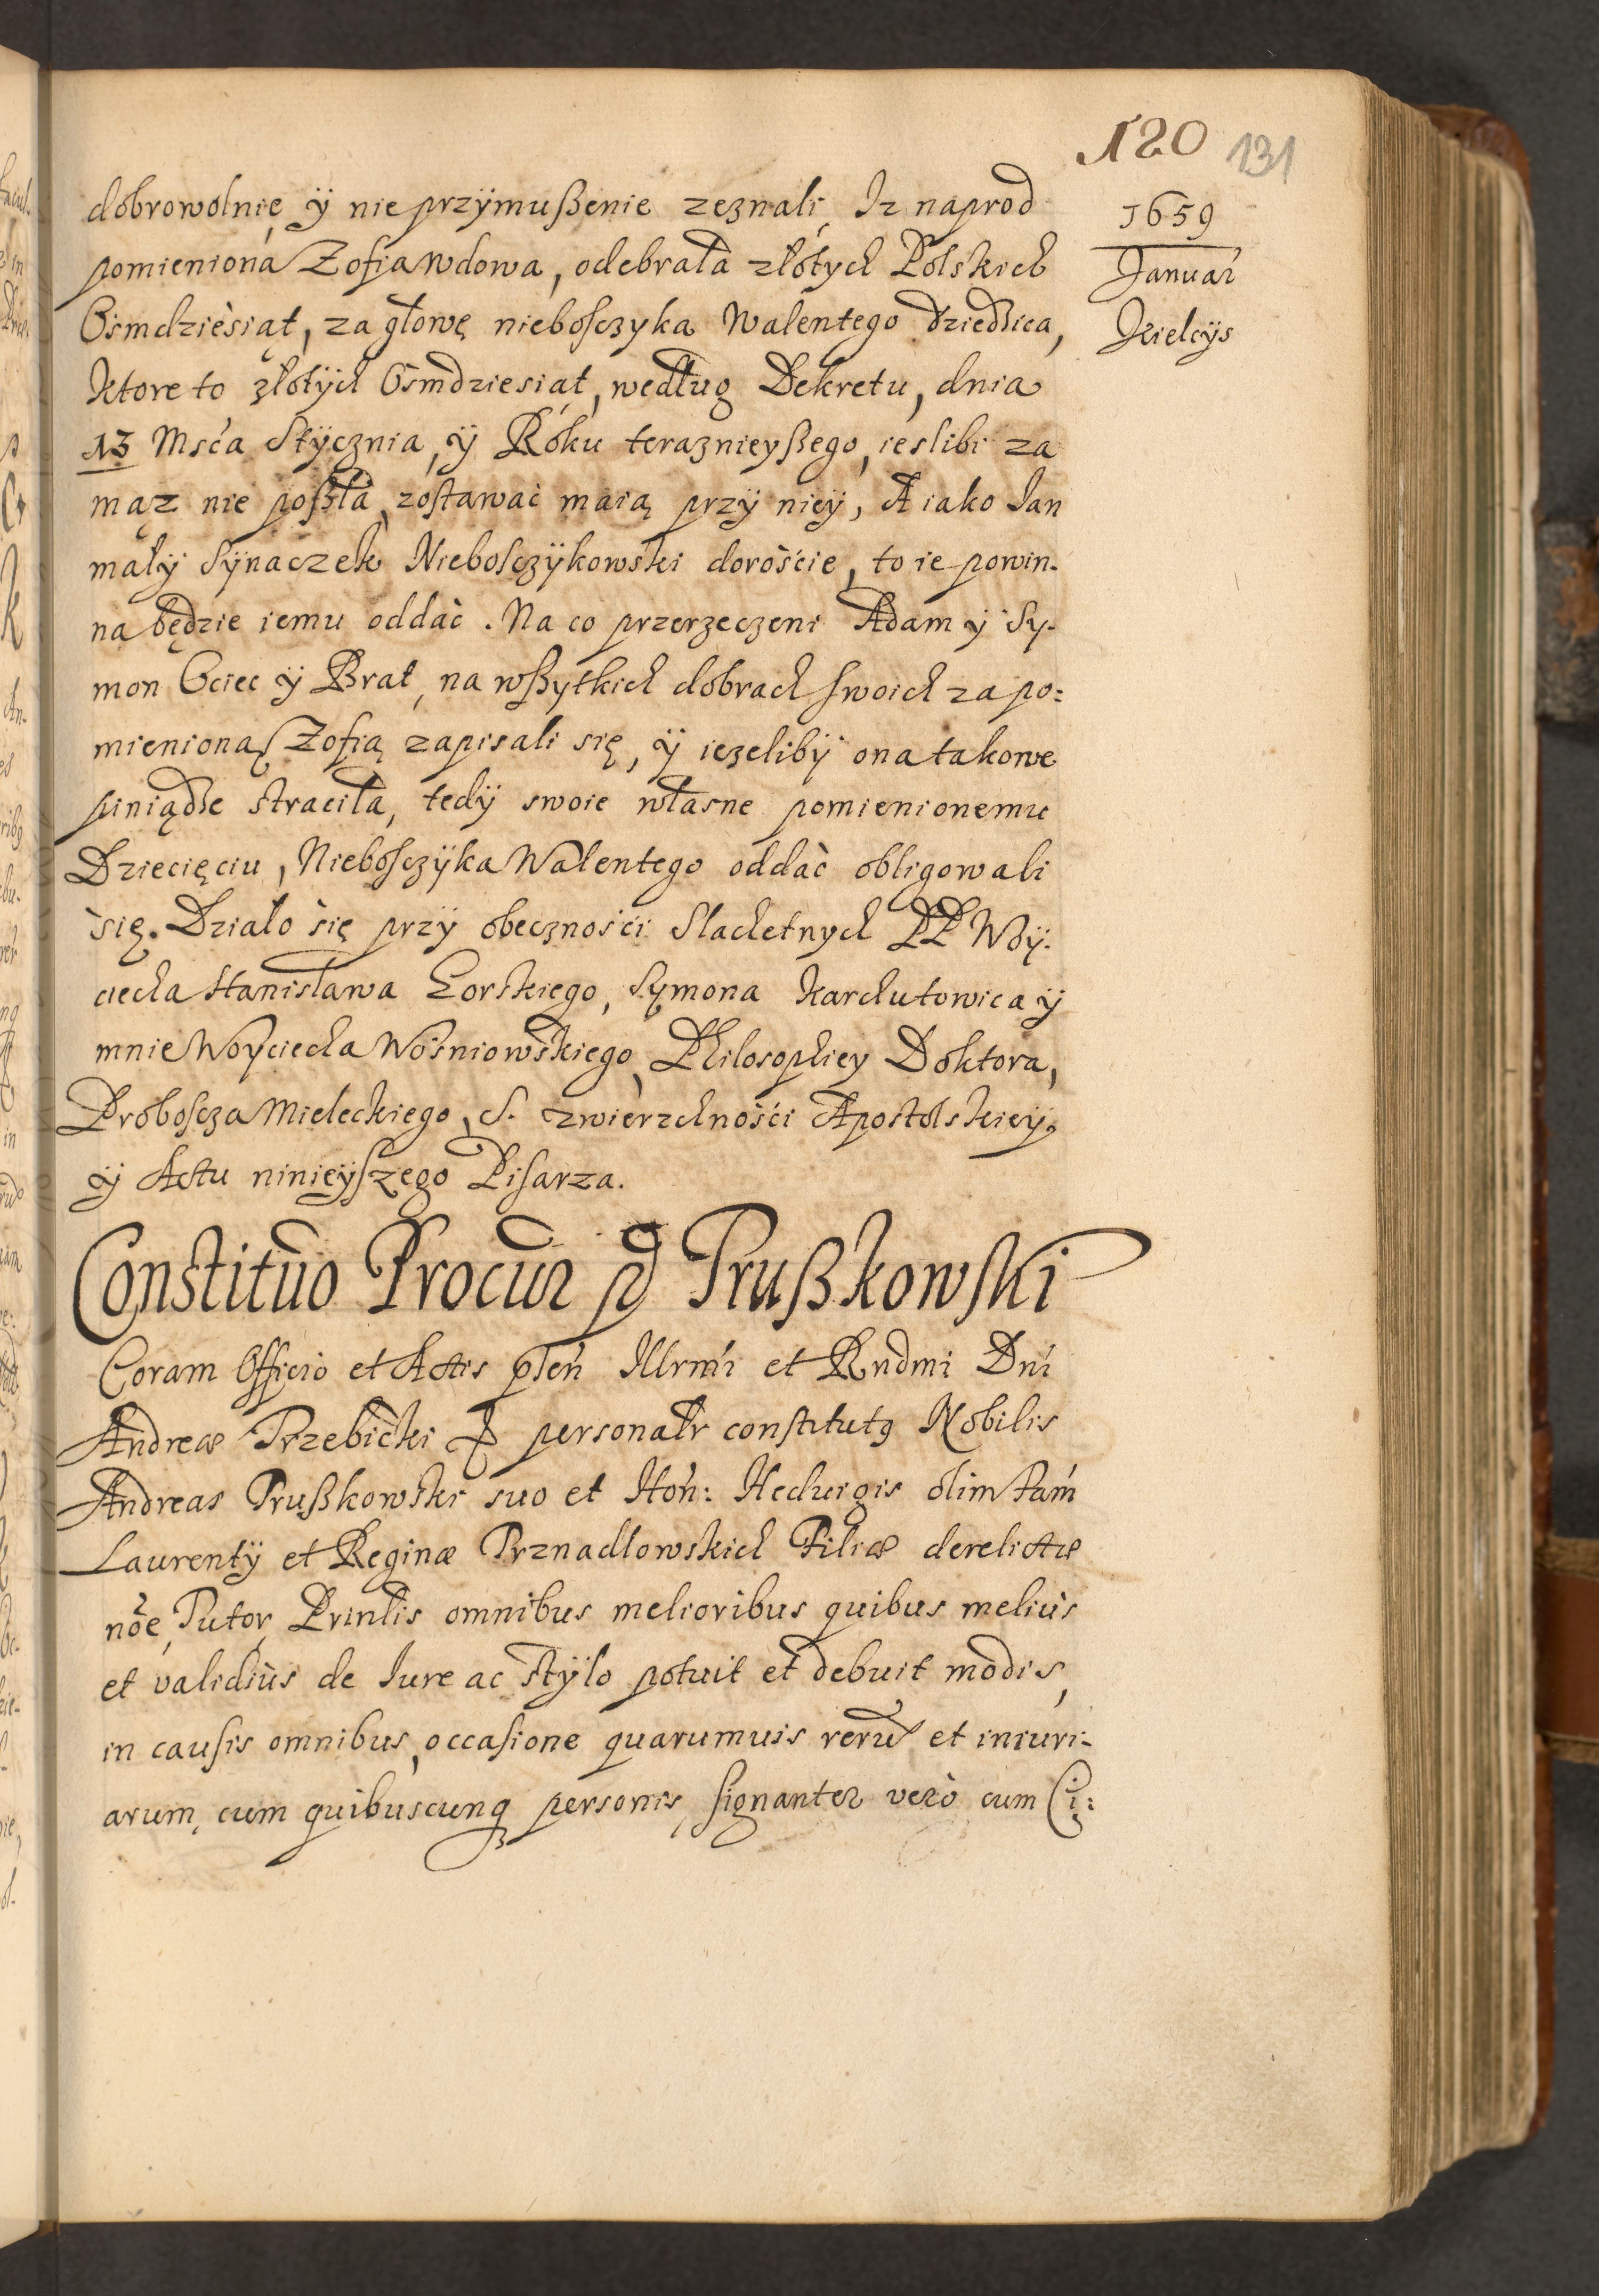 120 131
1659
Januar
Kielcÿs
dobrowolnie, ÿ nie przÿmußenie zeznali, Iz naprod
pomieniona Zofia wdowa, odebrała złotych Polskich
Osmdziesiąt, za głowę nieboſczyka Walentego dziedzica,
Ktore to złotÿch Osmdziesiąt, według Dekretu, dnia
13 Mśca Stÿcznia, ÿ Roku teraznieyßego, ieslibi za
mąz nie poſzła, zostawać maią przÿ nieÿ, A iako Jan
małÿ Sÿnaczek Nieboſczÿkowski dorośćie, to ie powin-
na będzie iemu oddać. Na co przerzeczeni Adam ÿ Sy-
mon Ociec ÿ Brat, na wßytkich dobrach ſwoich za po:
mienioną Zofią zapisali się, ÿ iezelibÿ ona takowe
piniądze straciła, tedÿ swoie własne pomienionemu
Dziecięciu, Nieboſczÿka Walentego oddać obligowali
się. Działo się przÿ obecznośći Slachetnych PP Woÿ-
ciecha Stanisława Gorskiego, Sÿmona Karchutowica ÿ
mnie Woyciecha Wośniowskiego, Philosophiey Doktora,
Proboſcza Mieleckiego, S. zwierzchnośći Apostolskieÿ,
ÿ Actu ninieÿſzego Piſarza.
Constituo Procur p D Prußkowſki
Coram Officio et Actis pñ Illrmi et Rndmi Dni
Andreæ Trzebicki personalr constitutꝯ Nobilis
Andreas Prußkowski suo et Hon: Heduigis olim Fam
Laurentÿ et Reginæ Prznadłowskich Filiæ derelictæ
nõe, Tutor Prinlis omnibus melioribus quibus meliùs
et validiùs de Iure ac stÿlo potuit et debuit modis,
in cauſis omnibus, occaſione quarumuis rerũ et iniuri-
arum, cum quibuscunq personis, ſignanter verò cum Ci: